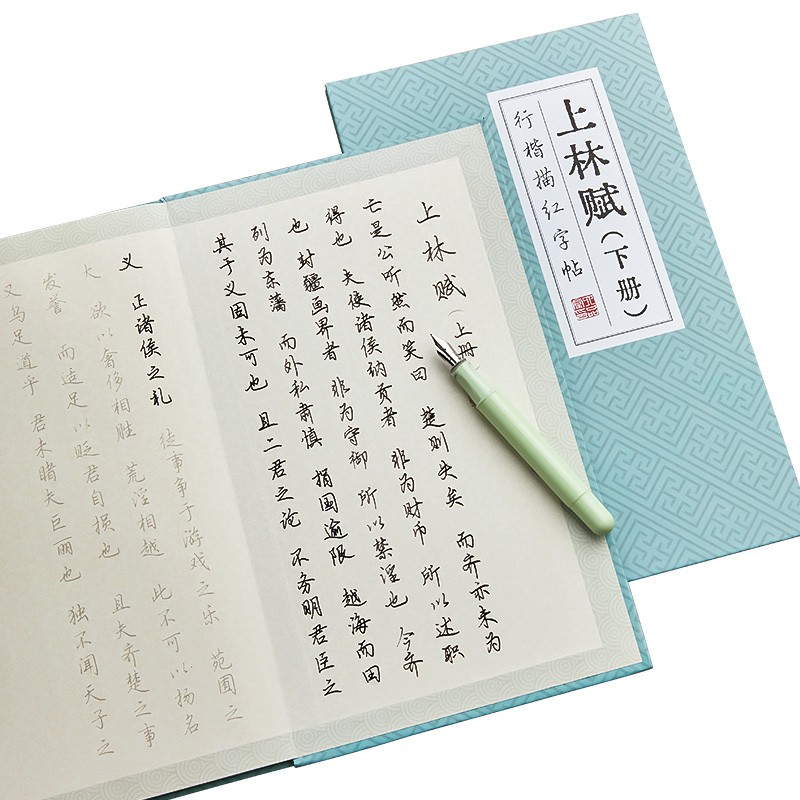 上林赋(下册)
行楷描红字帖
上林赋(上册
亡是公听然而笑曰 楚则失矣 而齐亦未为
得也 夫使诸侯纳贡者 非为财币 所以述职
也 封疆画界者 非为守御 所以禁淫也 今齐
列为东藩 而外私肃慎 捐国逾限 越海而田
其于义固未可也 且二君之论 不务明君臣之
义 正诸侯之礼 徒事争于游戏之乐 苑囿之
大 欲以奢侈相胜 荒淫相越 此不可以扬名
发誉 而适足以贬君自损也 且夫齐楚之事
又乌足道乎 君未睹夫巨丽也 独不闻天子之